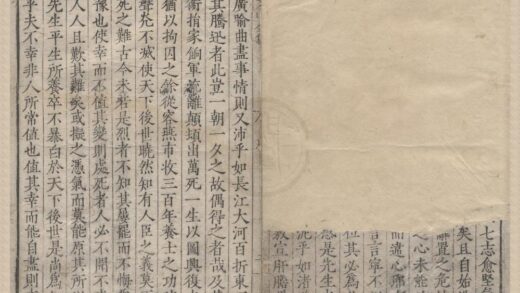 七志愈堅
矣且自始
辭置之危
之心未能
而遺心
言寧不
位其必為
是先生
乎如渚
宣肝膽
廣喻曲盡事情則又沛乎如長江大河百折東
其騰迅者此豈一朝一夕之故偶得之者哉及
衝捐家餉軍流離顛頓出萬死一生以圖興復
猶以拘囚之餘從容燕市收三百年養士之功
聲光不滅使天下後世曉然知有人臣之義莫
死之難古今未若是烈者不知其屢罷而不悔
豫也使幸而不值其變則處死者人必不聞不
人人且歎其難矣或擬之憑氣而莫能原其
先生平生所養卒不暴白於天下後世是為
乎夫不幸非人所常值也值其幸而能自盡則